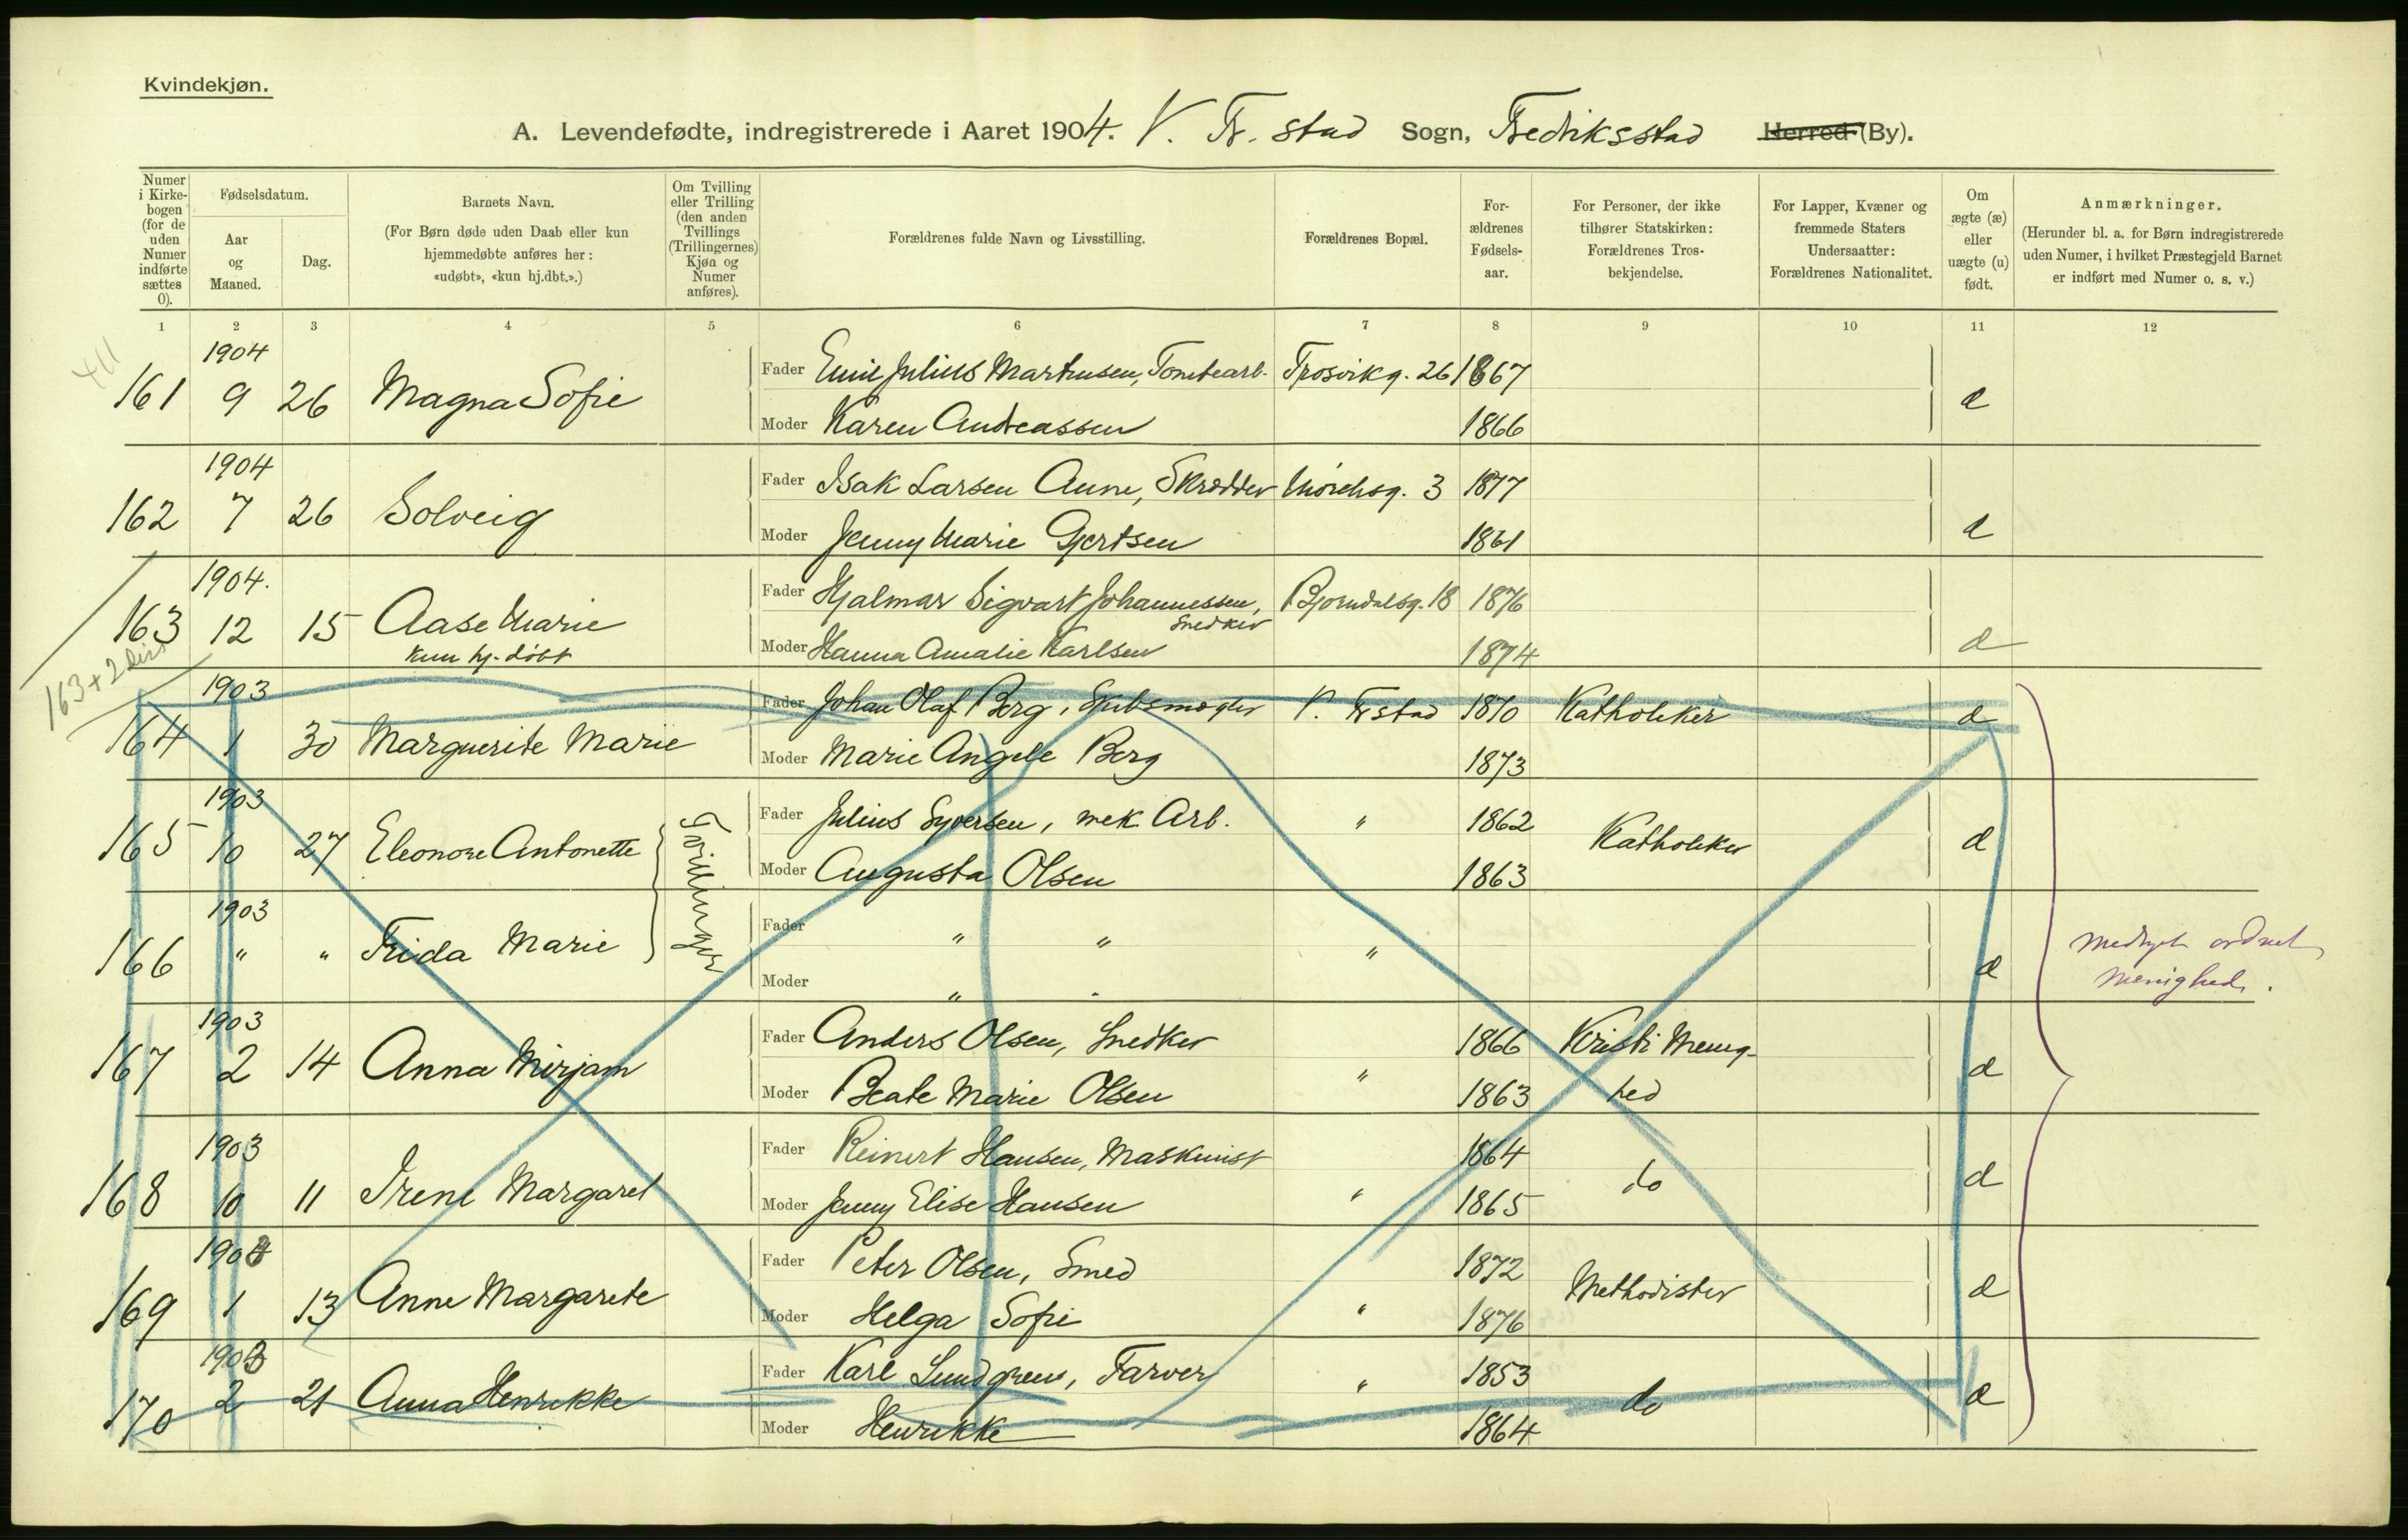 Kvindekjøn.
A. Levendefødte, indregistrerede i Aaret 1904. V. Fr. stad Sogn, Fredriksstad Herred (By).
Numer i Kirkebogen (for de uden Numer indførte sættes 0).
Fødselsdatum.
Aar og Maaned.
Dag.
Barnets Navn.
(For Børn døde uden Daab eller kun hjemmedøbte anføres her: «udøbt», «kun hj.dbt.».)
Om Tvilling eller Trilling (den anden Tvillings (Trillingernes) Kjøn og Numer anføres).
Forældrenes fulde Navn og Livsstilling.
Forældrenes Bopæl.
Forældrenes Fødselsaar.
For Personer, der ikke tilhører Statskirken: Forældrenes Trosbekjendelse.
For Lapper, Kvæner og fremmede Staters Undersaatter: Forældrenes Nationalitet.
Om ægte (æ) eller uægte (u) født.
Anmærkninger.
(Herunder bl. a. for Børn indregistrerede uden Numer, i hvilket Præstegjeld Barnet er indført med Numer o. s. v.)
1 2 3 4 5 6 7 8 9 10 11 12
1904
161 9 26 Magna Sofie Fader Emil Julius Martinsen, Tomtearb. Trosvikg. 26 1867 æ
Moder Karen Andreassen 1866
1904
162 7 26 Solveig Fader Isak Larsen Aune, Skrædder 3 1877 æ
Moder Jenny Marie Gjertsen 1861
1904.
163 12 15 Aase Marie Fader Hjalmar Sigvart Johannessen, Snedker Bjørndalsg. 18 1876 æ
kun hj. døbt Moder Hanna Amalie Karlsen 1874
163 + 2
1903
164 1 30 Marguerite Marie Fader Johan Olaf Berg, Skibsmægler V. Frstad 1870 Katholiker æ
Moder Marie Angele Berg 1873
1903
165 10 27 Eleonore Antonette Fader Julius Syversen, mek. Arb. " 1862 Katholiker æ
Moder Augusta Olsen 1863
1903
166 " " Frida Marie Fader " " " æ
Moder "
1903
167 2 14 Anna Mirjam Fader Anders Olsen, Snedker " 1866 Kristi Menighed æ
Moder Beate Marie Olsen 1863
1903
168 10 11 Irene Margaret Fader Reinert Hansen, Maskinist " 1864 do æ
Moder Jenny Elise Hansen 1865
169 1 13 Anne Margarete Fader Peter Olsen, Smed " 1872 Methodister æ
Moder Helga Sofie 1876
1903
170 2 21 Anna Henrikke Fader Karl Lundgren, Farver " 1853 do æ
Moder Henrikke 1864
Menighed.